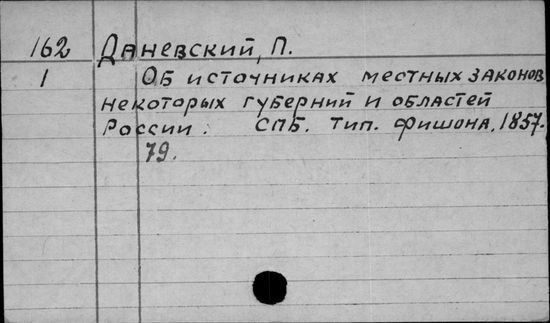 162 Даневский, П.
1 Об источниках местных законов
некоторых губерний и областей
России. СПБ. Тип. Фишона, 1857.
79.